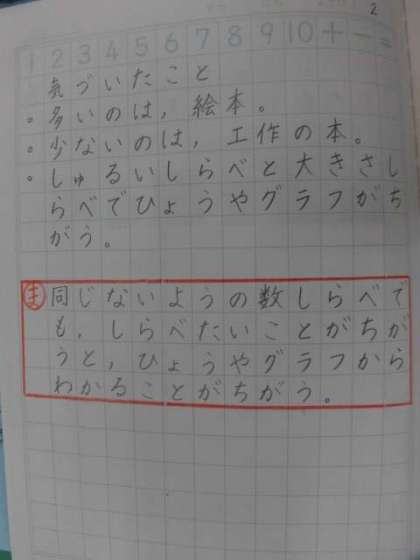 2
1 2 3 4 5 6 7 8 9 10 + - =
気づいたこと
・多いのは，絵本。
・少ないのは，工作の本。
・しゅるいしらべと大きさし
らべでひょうやグラフがち
がう。
ま 同じないようの数しらべで
も，しらべたいことがちが
うと，ひょうやグラフから
わかることがちがう。